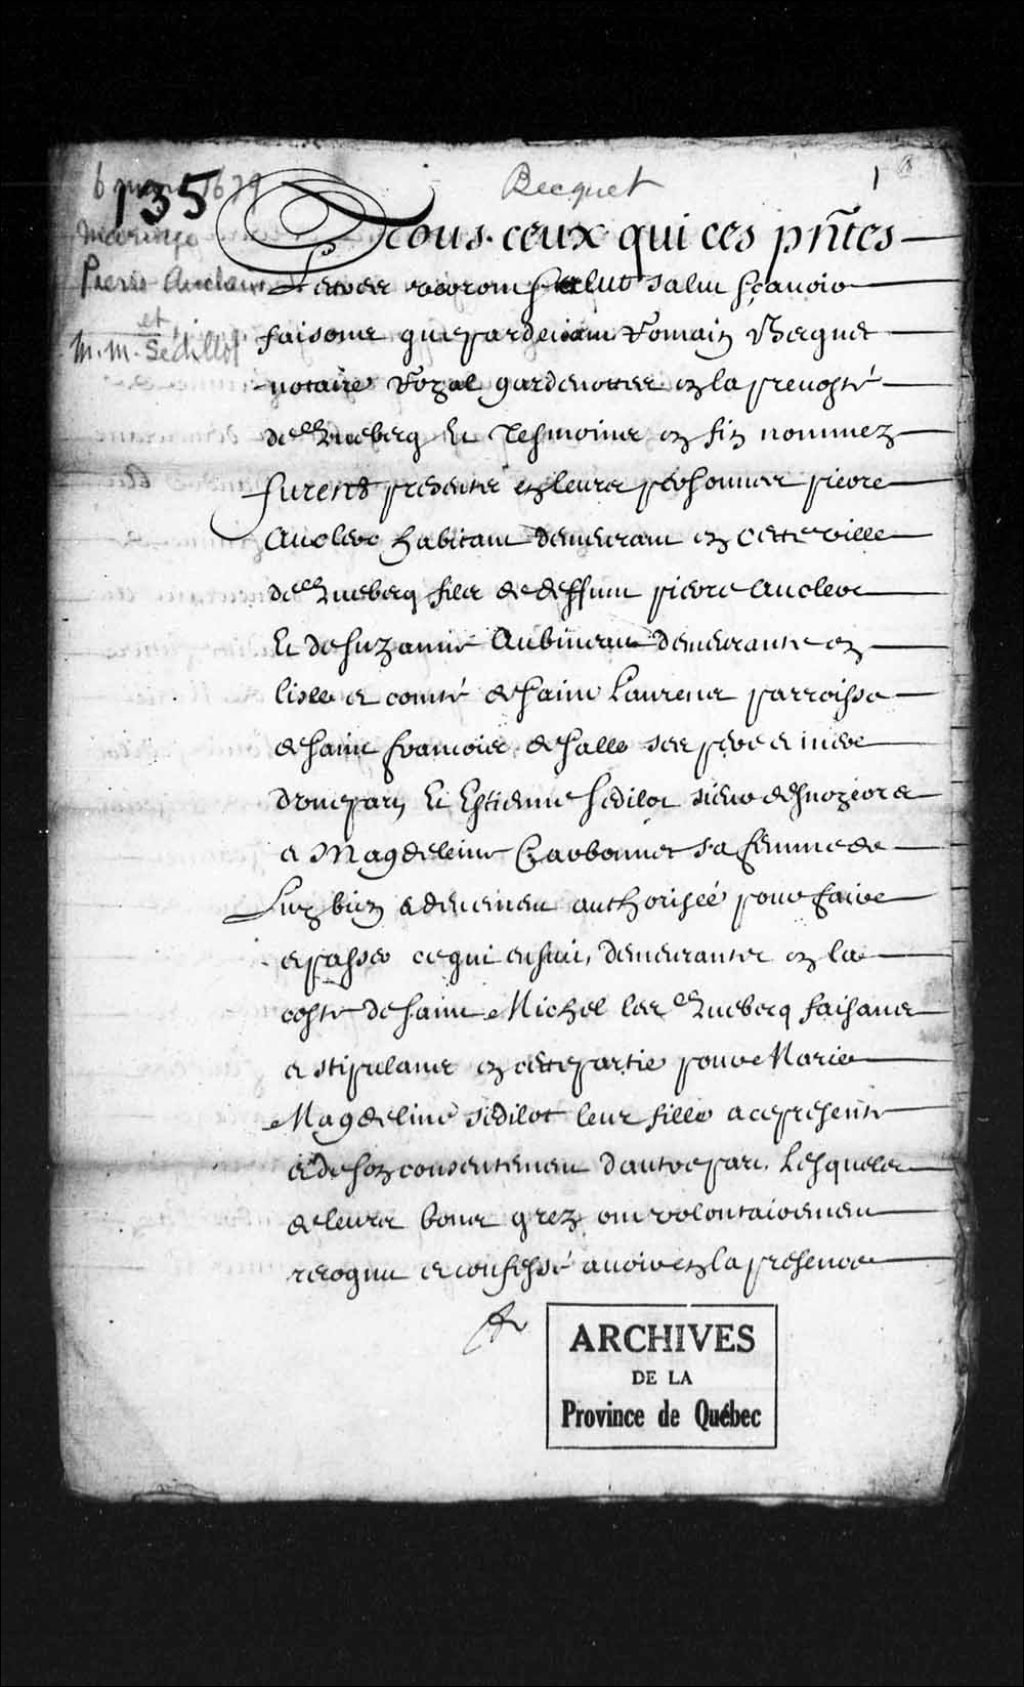 6 mars 1679
135
Becquet
1
Mariage
Pierre Auclair
et
M. M. Sédillot
A Tous ceux qui ces pñtes
Lettres verront salut salut sçavoir
faisons que pardevant Romain Becquet
notaire Royal gardenottes en la prevosté
de Quebecq Et Tesmoins en fin nommez
furents presents en leurs personnes pierre
Aucler habitant demeurant en cette ville
de Quebecq fils de deffunt pierre Aucler
Et de Suzanne Aubineau demeurante en
lisle et comté de saint Laurens parroisse
de saint francois de salle ses pere et mere
d'une part, Et Estienne sedilot sieur desnoyers
et Magdeleine Charbonnier sa femme de
Luy bien et deuement authorisée pour faire
et passer ce qui ensuit, demeurants en la
coste de saint Michel les Quebecq faisans
et stipulans en cette partie pour Marie
Magdeline sedilot leur fille a ce presente
et de son consentement d'autre part. Lesquels
de leurs bons grez ont volontairement
recognu et confessé avoir en la presence
ARCHIVES
DE LA
Province de Québec